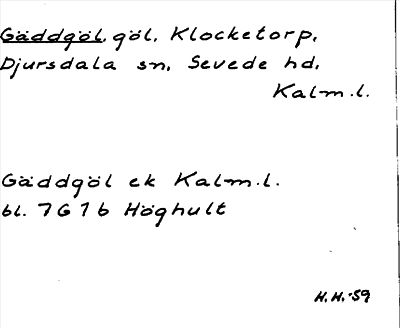 Gäddgöl, göl, Klocketorp,
Djursdala sn, Sevede hd,
Kalm.l.
Gäddgöl ek Kalm.l.
bl. 7G7b Höghult
H.H.-59